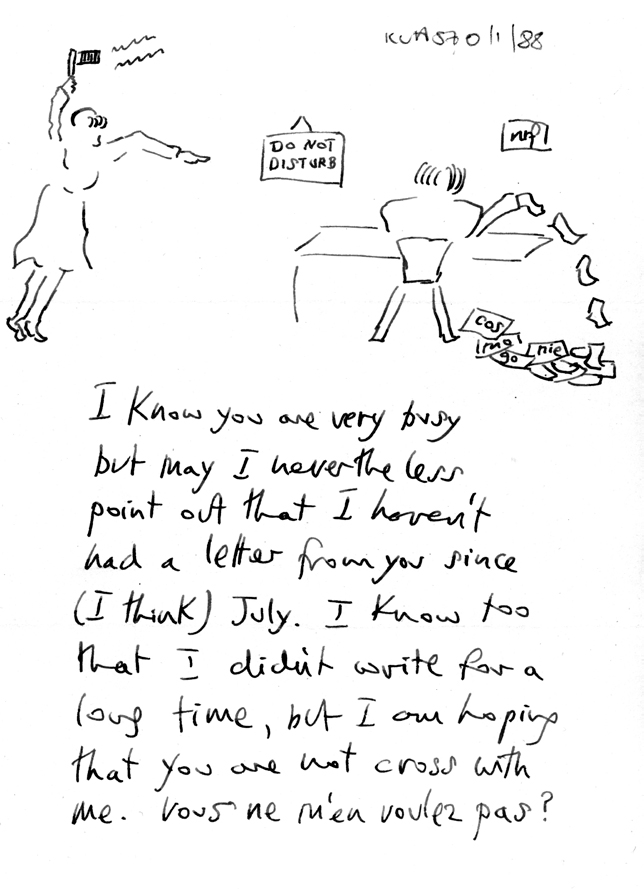 DO NOT
DISTURB
cos
go
nie
I know you are very busy
but may I nevertheless
point out that I haven't
had a letter from you since
(I think) July. I know too
that I didn't write for a
long time, but I am hoping
that you are not cross with
me. Vous ne m'en voulez pas?